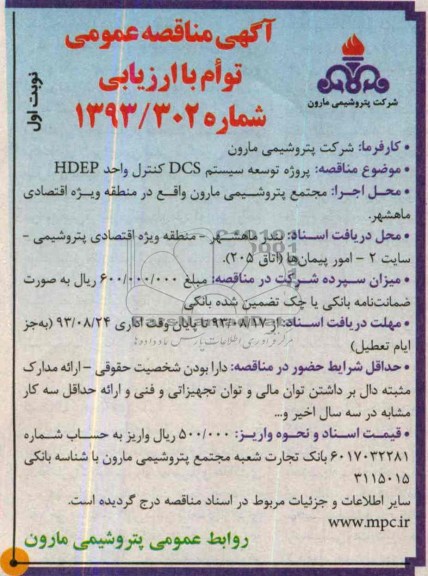 آگهی مناقصه عمومی
توأم با ارزیابی
شماره ۱۳۹۳/۳۰۲
نوبت اول
شرکت پتروشیمی مارون
• کارفرما: شرکت پتروشیمی مارون
• موضوع مناقصه: پروژه توسعه سیستم DCS کنترل واحد HDEP
• محل اجرا: مجتمع پتروشیمی مارون واقع در منطقه ویژه اقتصادی
ماهشهر.
• محل دریافت اسناد: بندر ماهشهر – منطقه ویژه اقتصادی پتروشیمی –
سایت ۲ – امور پیمان‌ها (اتاق ۲۰۵).
• میزان سپرده شرکت در مناقصه: مبلغ ۶۰۰/۰۰۰/۰۰۰ ریال به صورت
ضمانت‌نامه بانکی یا چک تضمین شده بانکی
• مهلت دریافت اسناد: از ۹۳/۰۸/۱۷ تا پایان وقت اداری ۹۳/۰۸/۲۴ (به‌جز
ایام تعطیل)
• حداقل شرایط حضور در مناقصه: دارا بودن شخصیت حقوقی – ارائه مدارک
مثبته دال بر داشتن توان مالی و توان تجهیزاتی و فنی و ارائه حداقل سه کار
مشابه در سه سال اخیر و...
• قیمت اسناد و نحوه واریز: ۵۰۰/۰۰۰ ریال واریز به حساب شماره
۶۰۱۷۰۳۲۲۸۱ بانک تجارت شعبه مجتمع پتروشیمی مارون با شناسه بانکی
۳۱۱۵۰۱۵
سایر اطلاعات و جزئیات مربوط در اسناد مناقصه درج گردیده است.
www.mpc.ir
روابط عمومی پتروشیمی مارون